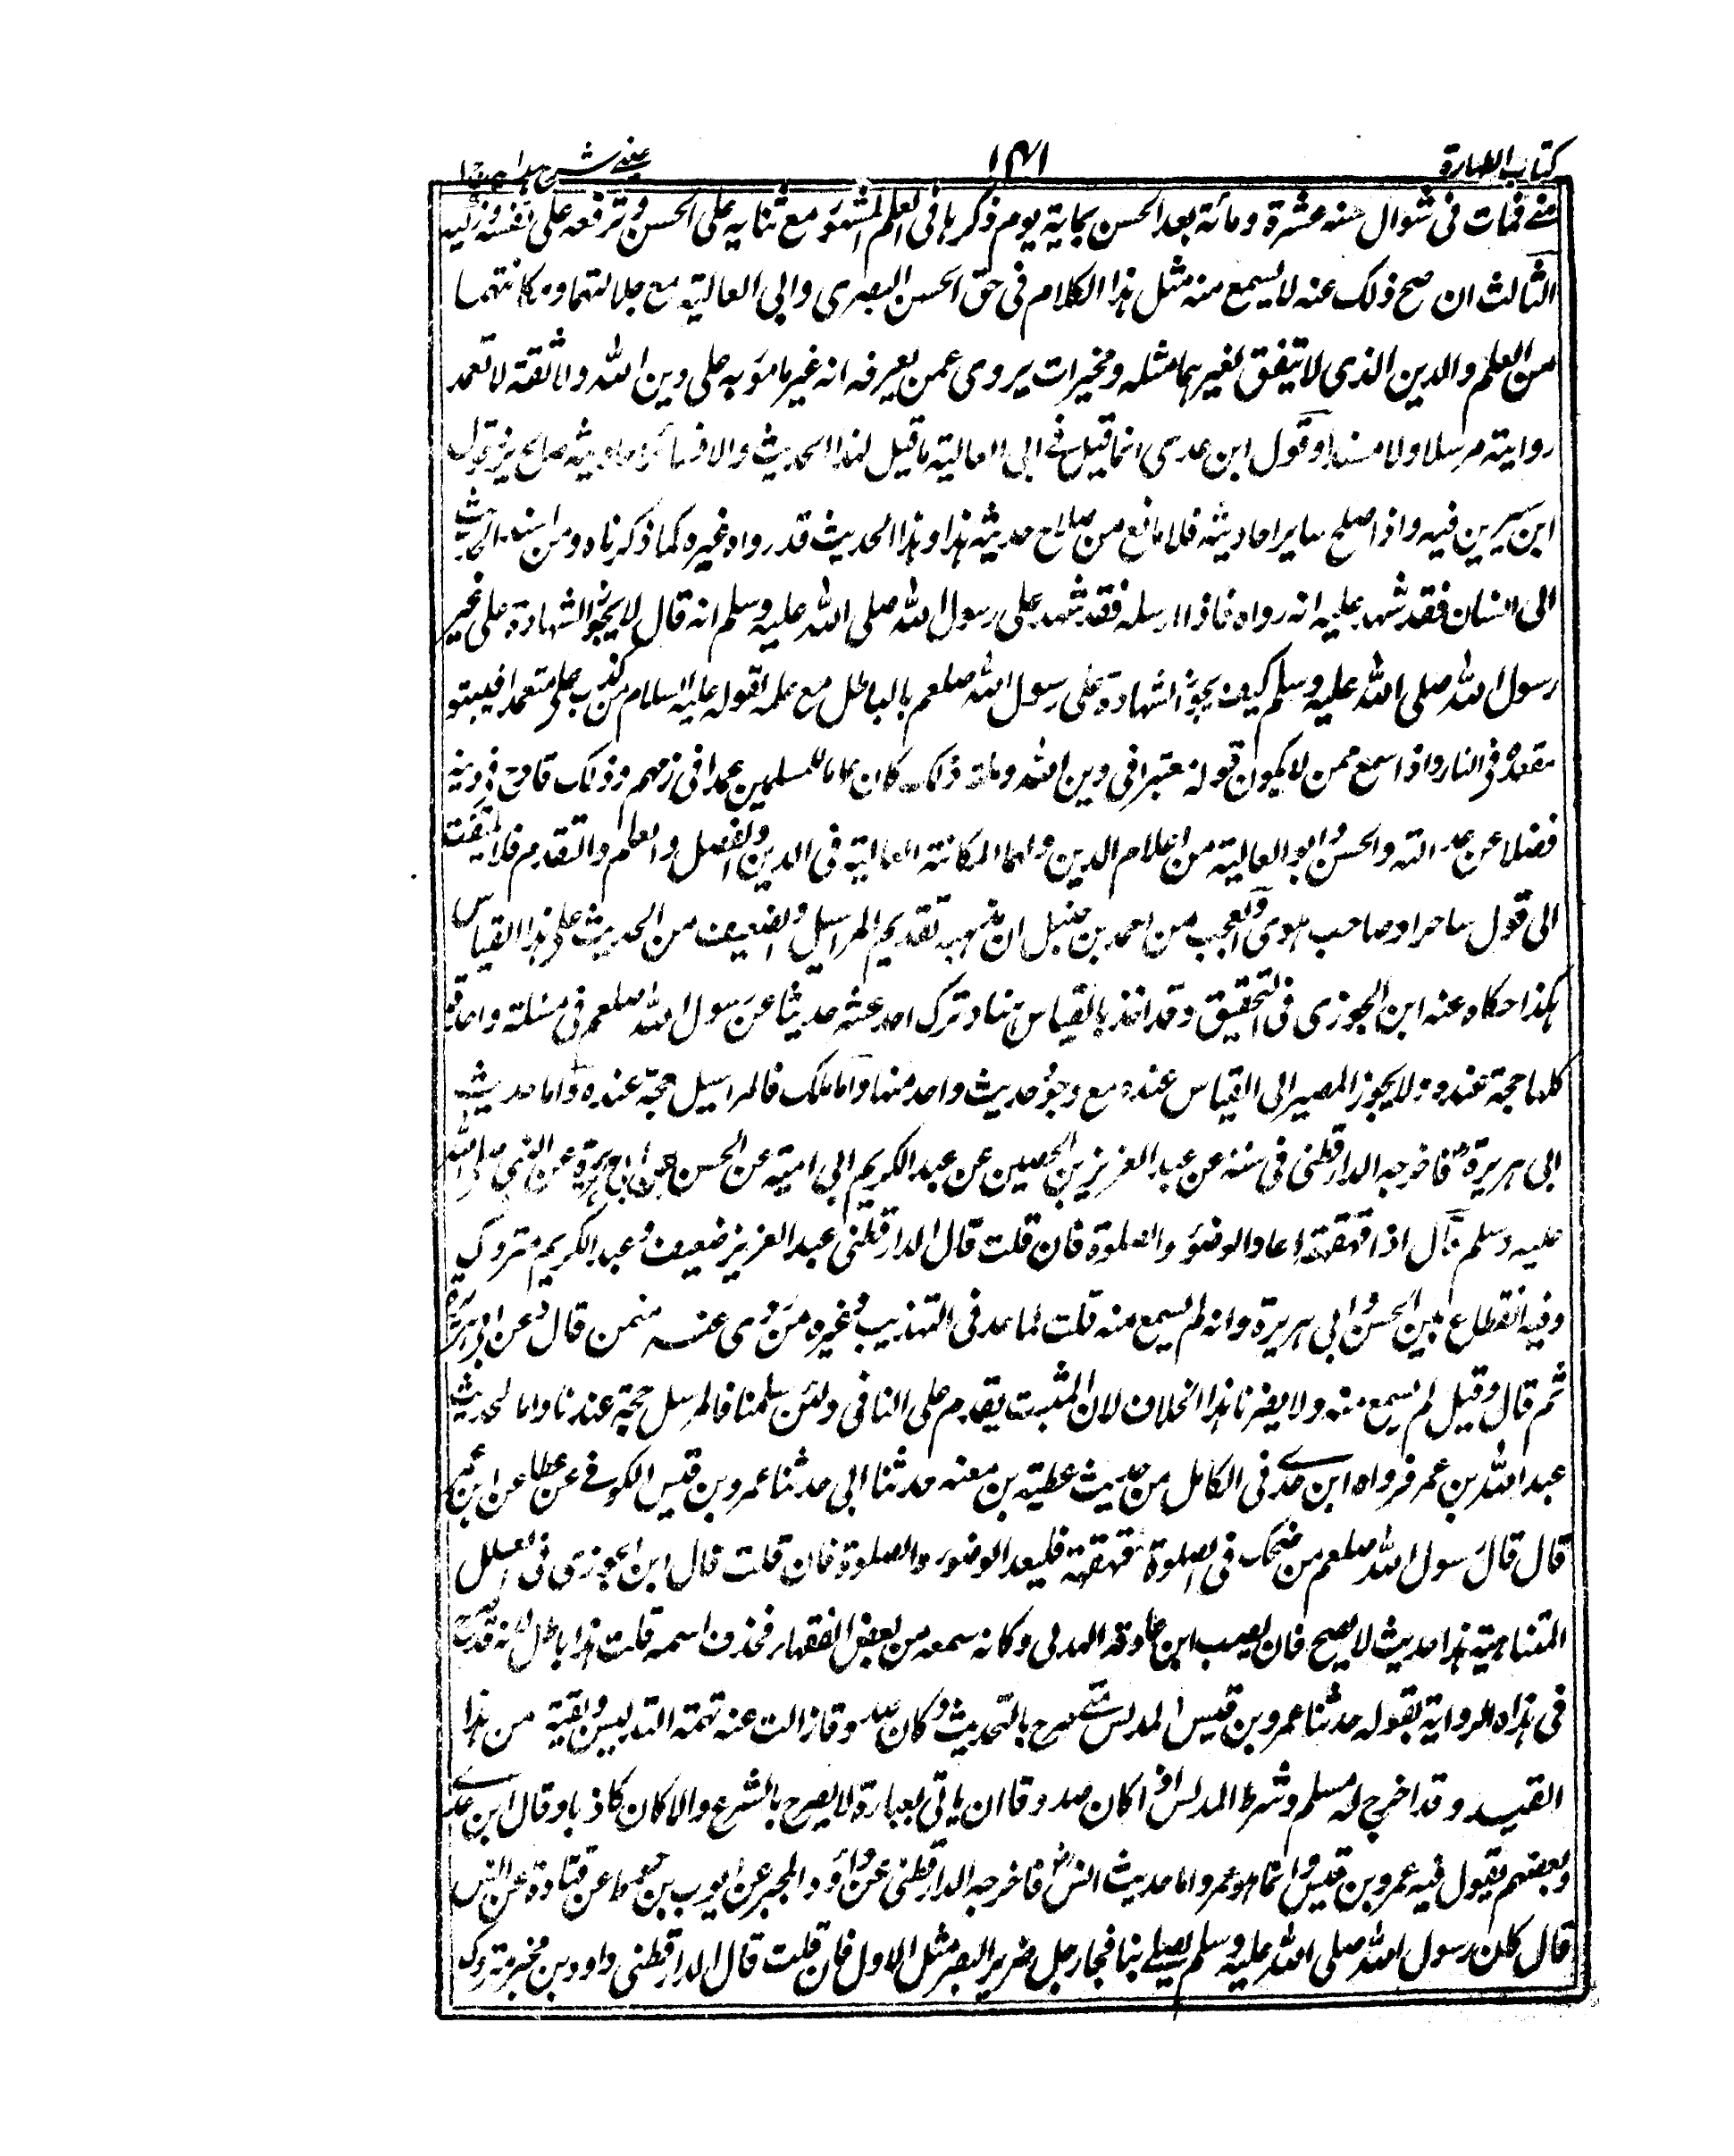 كتاب الطهارة
١٤١
عيني شرح هدايه ج ١
فمات فى شوال سنه عشرة ومائة بعد الحسن بماية يوم ذكرها فى العلم المشهور مع ثنايه على الحسن وترفعه على نفسه وتزكيه
الثالث ان صح ذلك عنه لا يسمع منه مثل هذا الكلام فى حق الحسن البصرى وابى العالية مع جلالتهما ومكانتهما
من العلم والدين الذى لا يتفق لغيرهما مثله ومخيرات يروى عمن يعرفه انه غير مامون به على دين الله ولا ثقة لا تعمد
رواية مرسلا ولا مسندا وقول ابن عدى انما قيل فى ابى العالية ما قيل لهذا الحديث والا فسائر احاديثه صالح يزيد قول
ابن سيرين فيه واذا صلح ساير احاديثه فلا مانع من صلاح حديثه هذا وهذا الحديث قد رواه غيره كما ذكرناه ومن اسند الحديث
الى انسان فقد شهد عليه انه رواه فاذا ارسله فقد شهد على رسول الله صلى الله عليه وسلم انه قال لا يجوز الشهادة على غير
رسول الله صلى الله عليه وسلم كيف يجوز الشهادة على رسول الله صلعم بالباطل مع علمه لقوله عليه السلام من كذب على متعمدا فيتبو
مقعده فى النار واذا سمع ممن لا يكون قوله معتبرا فى دين الله وملة ذلك كان عاما للمسلمين عمدا فى زمهم وذلك قادح فى دينه
فضلا عن عدالته والحسن وابو العالية من اعلام الدين ولهما المكانة العالية فى الدين والفضل والعلم والتقدم فلا يلتفت
الى قول ساحر او صاحب هوى والعجب من احمد بن حنبل ان مذهبه تقديم المراسيل والضعيف من الحديث على هذا القياس
هكذا حكاه عنه ابن الجوزى فى التحقيق وقد اخذ بالقياس هنا وترك احد عشر حديثا عن رسول الله صلعم فى مسئلة واحدة
كلها حجة عنده ولا يجوز المصير الى القياس عنده مع وجود حديث واحد منها واما ملك فالمراسيل حجة عنده واما حديث
ابى هريرة رض فاخرجه الدارقطنى فى سننه عن عبد العزيز بن الحصين عن عبد الكريم ابى امية عن الحسن عن ابى هريرة عن النبى صلى الله
عليه وسلم قال اذا قهقهة اعاد الوضوء والصلوة فان قلت قال الدارقطنى عبد العزيز ضعيف وعبد الكريم متروك
وفيه انقطاع بين الحسن وابى هريرة وانه لم يسمع منه قلت لما عد فى التهذيب وغيره من روى عنه منمن قال وعن ابى هريرة
ثم قال وقيل لم يسمع منه ولا يضرنا هذا الخلاف لان المثبت يقدم على النافى ولئن سلمنا فالمرسل حجة عندنا واما لحديث
عبد الله بن عمر فرواه ابن عدى فى الكامل من حديث عطية بن معنه حدثنا ابى حدثنا عمرو بن قيس الكوفى عن عطا عن ابن عمر
قال قال رسول الله صلعم من ضحك فى الصلوة قهقهة فليعد الوضوء والصلوة فان قلت قال ابن الجوزى فى العلل
المتناهية هذا حديث لا يصح فان يصب ابن عادته الهدلى وكانه سمعه من بعض الفقهاء فحذف اسمه قلت هذا باطل لانه قد
فى هذاه الرواية بقوله حدثنا عمرو بن قيس المدلس متى صرح بالتحديث وكان صدوقا زالت عنه تهمة التدليس وبقية من هذا
القبيد وقد اخرج له مسلم وشرط المدلس اذا كان صدوقا ان ياتى بعبارة لا يصرح بالشرع والا كان كاذبا وقال ابن عدى
وبعضهم يقول فيه عمرو بن قيس وانما هو عمر واما حديث انس رض فاخرجه الدارقطنى عن داؤد المجبر عن ايوب بن خوط عن قتادة عن انس
قال كان رسول الله صلى الله عليه وسلم يصلى بنا فجاء رجل ضرير البصر مثل الاول فان قلت قال الدارقطنى داود بن مخبر متروك